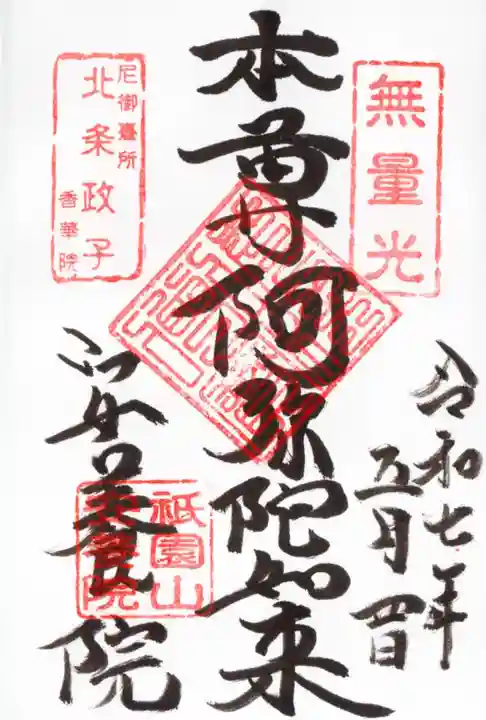 無量光
令和七年
五月四日
本尊阿弥陀如来
尼御臺所
北条政子
香華院
安養院
祇園山
安養院